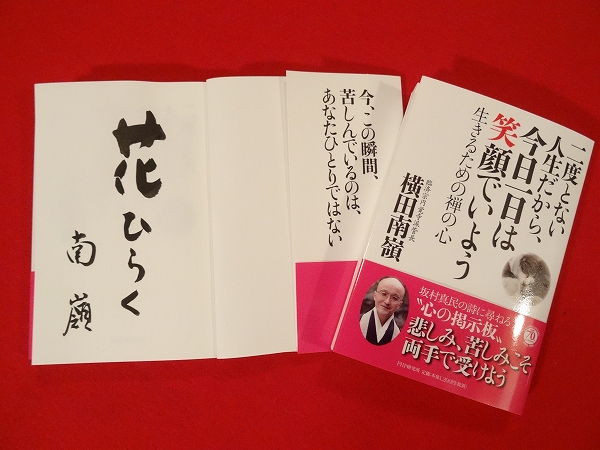 花ひらく
南嶺
今、この瞬間、
苦しんでいるのは、
あなたひとりではない
二度とない
人生だから、
今日一日は
笑顔でいよう
生きるための禅の心
臨済宗円覚寺派管長
横田南嶺
坂村真民の詩に尋ねる
“心の掲示板”
悲しみ、苦しみこそ
両手で受けよう
PHP研究所